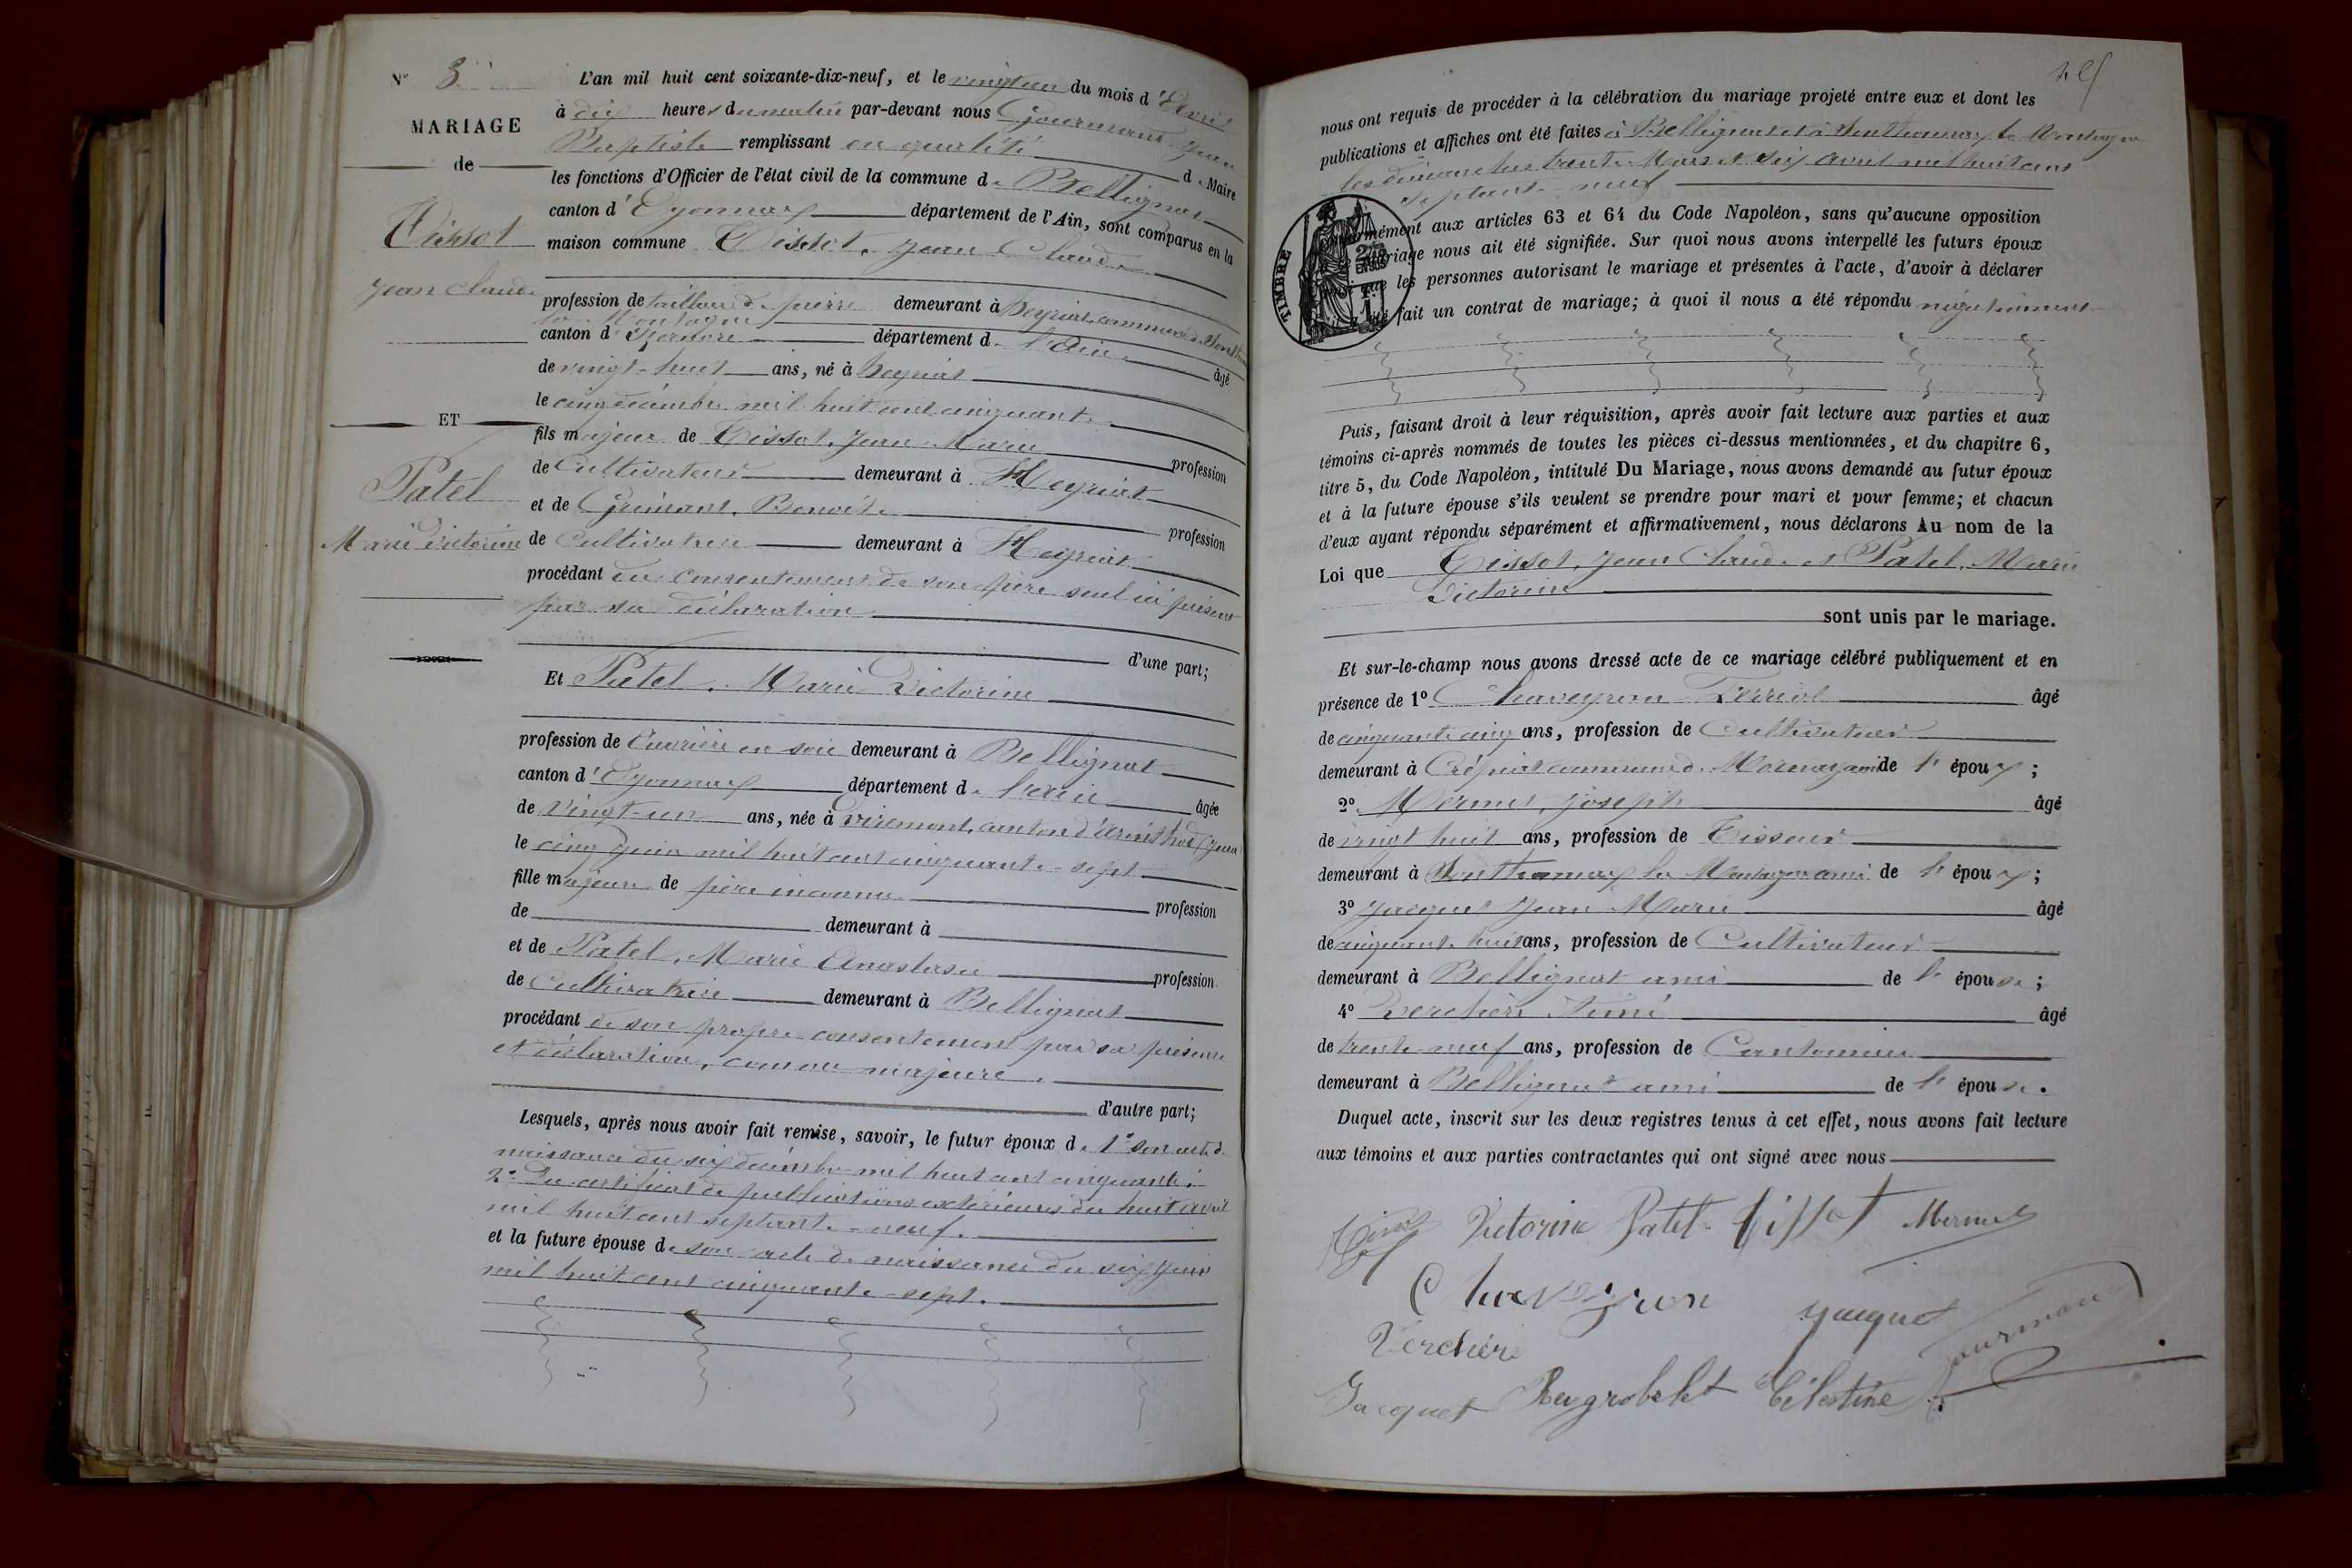 N° 3
MARIAGE
de
Tissot
Jean Claude
ET
Patel
Marie Victorine
L'an mil huit cent soixante-dix-neuf, et le vingt un du mois d'Avril
à dix heures du matin par-devant nous Gourmand Jean
Baptiste remplissant en qualité de Maire
les fonctions d'Officier de l'état civil de la commune de Bellignat
canton d'Oyonnax département de l'Ain, sont comparus en la
maison commune Tissot, Jean Claude
profession de tailleur de pierre demeurant à Heyriat, commune de Sonthonnax
la Montagne
canton d'Izernore département de l'Ain âgé
de vingt-huit ans, né à Heyriat
le cinq décembre mil huit cent cinquante
fils majeur de Tissot, Jean Marie profession
de Cultivateur demeurant à Heyriat
et de Benoîte profession
de Cultivatrice demeurant à Heyriat
procédant du consentement de son père seul ici présent
par sa déclaration
d'une part;
Et Patel, Marie Victorine
profession de Ouvrière en soie demeurant à Bellignat
canton d'Oyonnax département de l'Ain âgée
de vingt-un ans, née à Viremont, canton d'Arinthod (Jura)
le cinq Juin mil huit cent cinquante-sept
fille majeure de père inconnu profession
de demeurant à
et de Patel, Marie Anastasie profession
de Cultivatrice demeurant à Bellignat
procédant de son propre consentement par sa présence
et déclaration, comme majeure.
d'autre part;
Lesquels, après nous avoir fait remise, savoir, le futur époux de 1° son acte de
naissance du six décembre mil huit cent cinquante;
2° Du certificat de publications extérieures du huit avril
mil huit cent septante-neuf.
et la future épouse de son acte de naissance du six Juin
mil huit cent cinquante-sept.
nous ont requis de procéder à la célébration du mariage projeté entre eux et dont les
publications et affiches ont été faites à Bellignat et à Sonthonnax la Montagne
les dimanches trente Mars et six avril mil huit cent
septante-neuf
conformément aux articles 63 et 64 du Code Napoléon, sans qu'aucune opposition
mariage nous ait été signifiée. Sur quoi nous avons interpellé les futurs époux
ainsi que les personnes autorisant le mariage et présentes à l'acte, d'avoir à déclarer
s'il a été fait un contrat de mariage; à quoi il nous a été répondu négativement
TIMBRE
Puis, faisant droit à leur réquisition, après avoir fait lecture aux parties et aux
témoins ci-après nommés de toutes les pièces ci-dessus mentionnées, et du chapitre 6,
titre 5, du Code Napoléon, intitulé Du Mariage, nous avons demandé au futur époux
et à la future épouse s'ils veulent se prendre pour mari et pour femme; et chacun
d'eux ayant répondu séparément et affirmativement, nous déclarons Au nom de la
Loi que Tissot, Jean Claude et Patel, Marie
Victorine
sont unis par le mariage.
Et sur-le-champ nous avons dressé acte de ce mariage célébré publiquement et en
présence de 1° Chaveyron Ferréol âgé
de cinquante cinq ans, profession de Cultivateur
demeurant à Crépiat commune de Mornay ami de l'époux;
2° Mermet, Joseph âgé
de vingt huit ans, profession de Tisseur
demeurant à Sonthonnax la Montagne ami de l'époux;
3° Jacquet Jean Marie âgé
de cinquante huit ans, profession de Cultivateur
demeurant à Bellignat ami de l'épouse;
4° Verchère Aimé âgé
de trente-neuf ans, profession de Cantonnier
demeurant à Bellignat ami de l'épouse.
Duquel acte, inscrit sur les deux registres tenus à cet effet, nous avons fait lecture
aux témoins et aux parties contractantes qui ont signé avec nous
Victorine Patel Tissot Mermet
Chaveyron Jacquet
Verchère Gourmand
Jacquet Reygrobellet Célestine